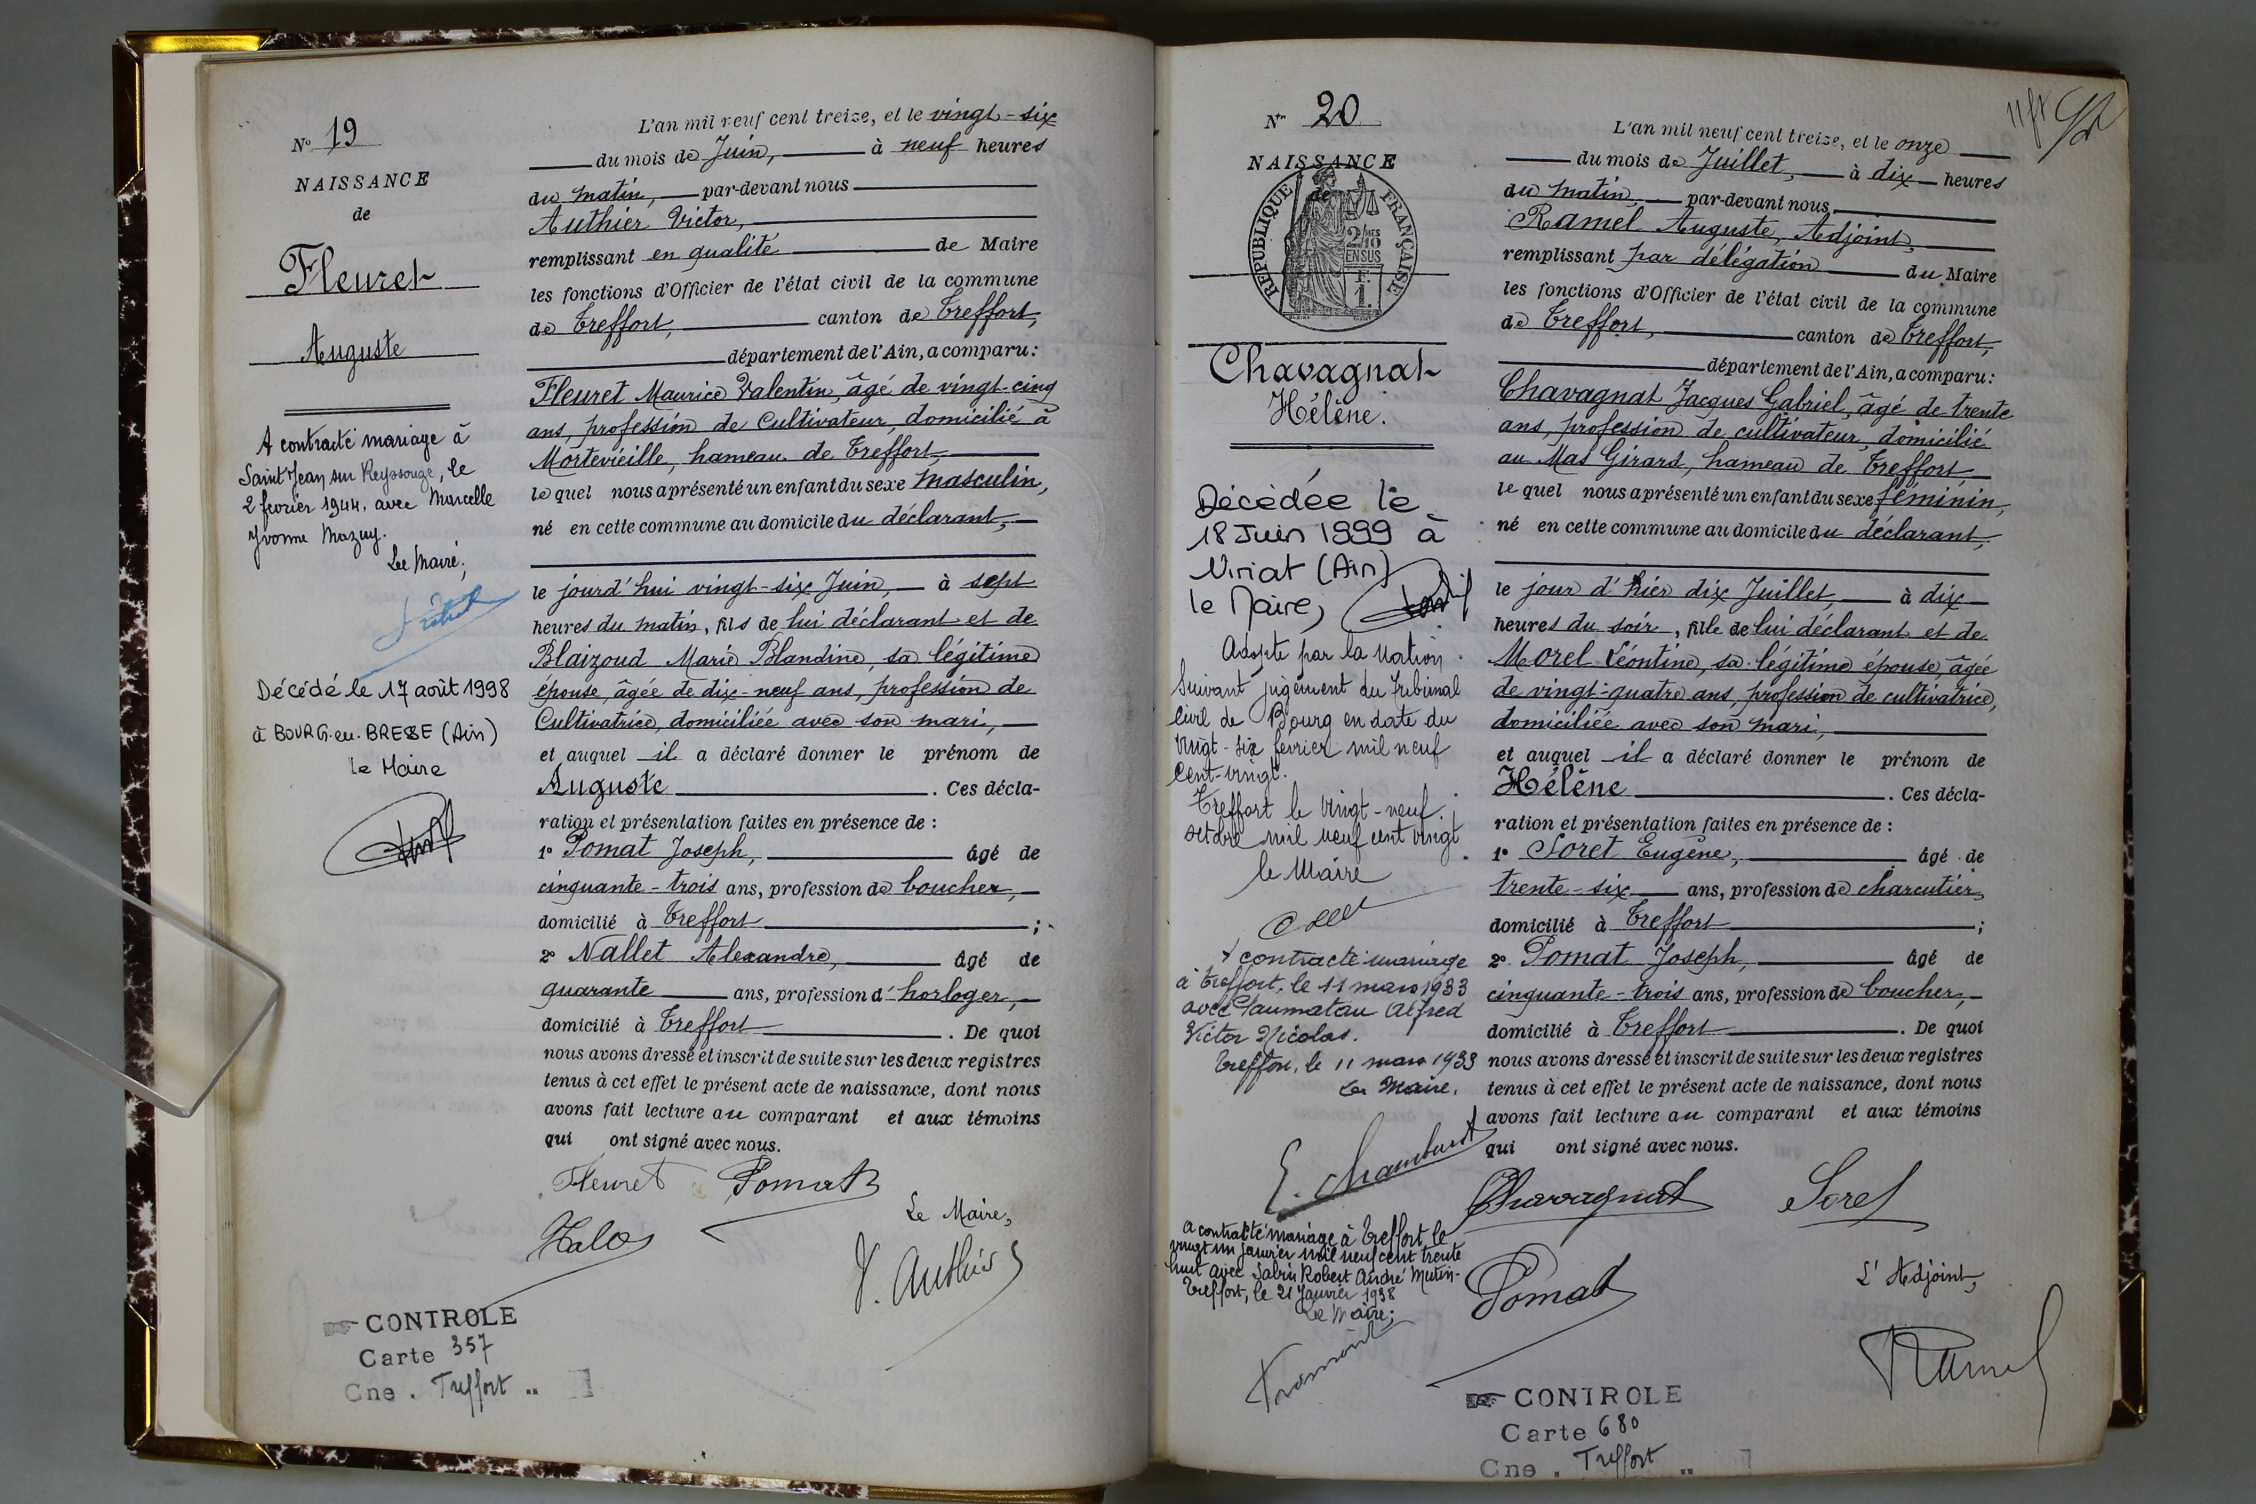 No 19
NAISSANCE
de
Fleuret
Auguste
A contracté mariage à
Saint Jean sur Reyssouze, le
2 février 1944, avec Marcelle
Yvonne Mazuy.
Le Maire,
Décédé le 17 août 1998
à BOURG-en-BRESSE (Ain)
le Maire
L'an mil neuf cent treize, et le vingt-six
du mois de Juin, à neuf heures
du matin, par-devant nous
Authier Victor,
remplissant en qualité de Maire
les fonctions d'Officier de l'état civil de la commune
de Treffort, canton de Treffort,
département de l'Ain, a comparu:
Fleuret Maurice Valentin, âgé de vingt-cinq
ans, profession de Cultivateur, domicilié à
Mortevieille, hameau de Treffort,
lequel nous a présenté un enfant du sexe masculin,
né en cette commune au domicile du déclarant,
le jourd'hui vingt-six Juin, à sept
heures du matin, fils de lui déclarant et de
Blaizoud Marie Blandine, sa légitime
épouse, âgée de dix-neuf ans, profession de
Cultivatrice, domiciliée avec son mari,
et auquel il a déclaré donner le prénom de
Auguste. Ces décla-
ration et présentation faites en présence de :
1° Pomat Joseph, âgé de
cinquante-trois ans, profession de boucher,
domicilié à Treffort ;
2° Nallet Alexandre, âgé de
quarante ans, profession d'horloger,
domicilié à Treffort. De quoi
nous avons dressé et inscrit de suite sur les deux registres
tenus à cet effet le présent acte de naissance, dont nous
avons fait lecture au comparant et aux témoins
qui ont signé avec nous.
Fleuret Pomat
Le Maire,
V. Authier
CONTROLE
Carte 357
Cne. Treffort
No 20
NAISSANCE
de
REPUBLIQUE FRANÇAISE
2/10 MES
EN SUS
F.
1.
Chavagnat
Hélène.
Décédée le
18 Juin 1999 à
Viriat (Ain)
le Maire,
Adopte par la Nation
suivant jugement du Tribunal
Civil de Bourg en date du
vingt-six février mil neuf
cent-vingt.
Treffort le vingt-neuf
octobre mil neuf cent vingt
le Maire
A contracté mariage
à Treffort, le 11 mars 1933
avec Alfred
Victor Nicolas.
Treffort, le 11 mars 1933
Le Maire,
a contracté mariage à Treffort le
vingt un janvier mil neuf cent trente
huit avec Sabin Robert André Mutin-
Treffort, le 21 Janvier 1938
Le Maire;
L'an mil neuf cent treize, et le onze
du mois de Juillet, à dix heures
du matin, par-devant nous
Ramel Auguste, Adjoint,
remplissant par délégation du Maire
les fonctions d'Officier de l'état civil de la commune
de Treffort, canton de Treffort,
département de l'Ain, a comparu:
Chavagnat Jacques Gabriel, âgé de trente
ans, profession de cultivateur, domicilié
au Mas Girard, hameau de Treffort,
lequel nous a présenté un enfant du sexe féminin,
né en cette commune au domicile du déclarant,
le jour d'hier dix Juillet, à dix
heures du soir, fille de lui déclarant et de
Morel Léontine, sa légitime épouse, âgée
de vingt-quatre ans, profession de cultivatrice,
domiciliée avec son mari,
et auquel il a déclaré donner le prénom de
Hélène. Ces décla-
ration et présentation faites en présence de :
1° Soret Eugène, âgé de
trente-six ans, profession de charcutier,
domicilié à Treffort ;
2° Pomat Joseph, âgé de
cinquante-trois ans, profession de boucher,
domicilié à Treffort. De quoi
nous avons dressé et inscrit de suite sur les deux registres
tenus à cet effet le présent acte de naissance, dont nous
avons fait lecture au comparant et aux témoins
qui ont signé avec nous.
Chavagnat Soret
Pomat
L'Adjoint,
Ramel
CONTROLE
Carte 680
Cne. Treffort